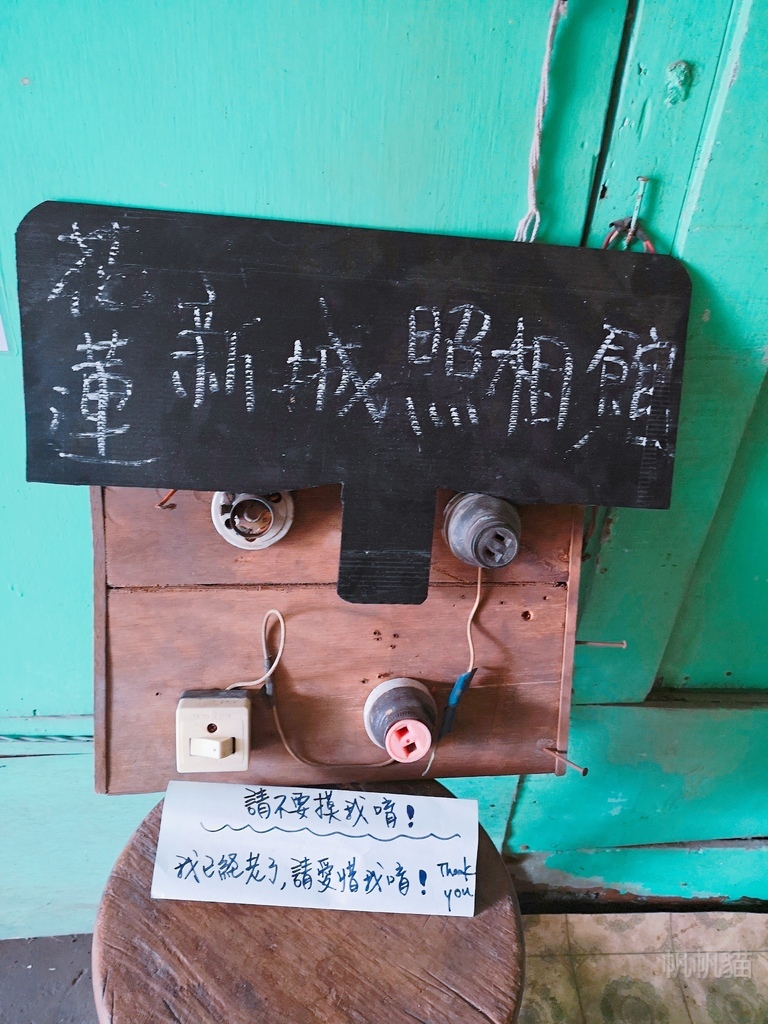 花蓮新城照相館
請不要摸我唷!
我已經老了,請愛惜我唷! Thank you
帆帆貓